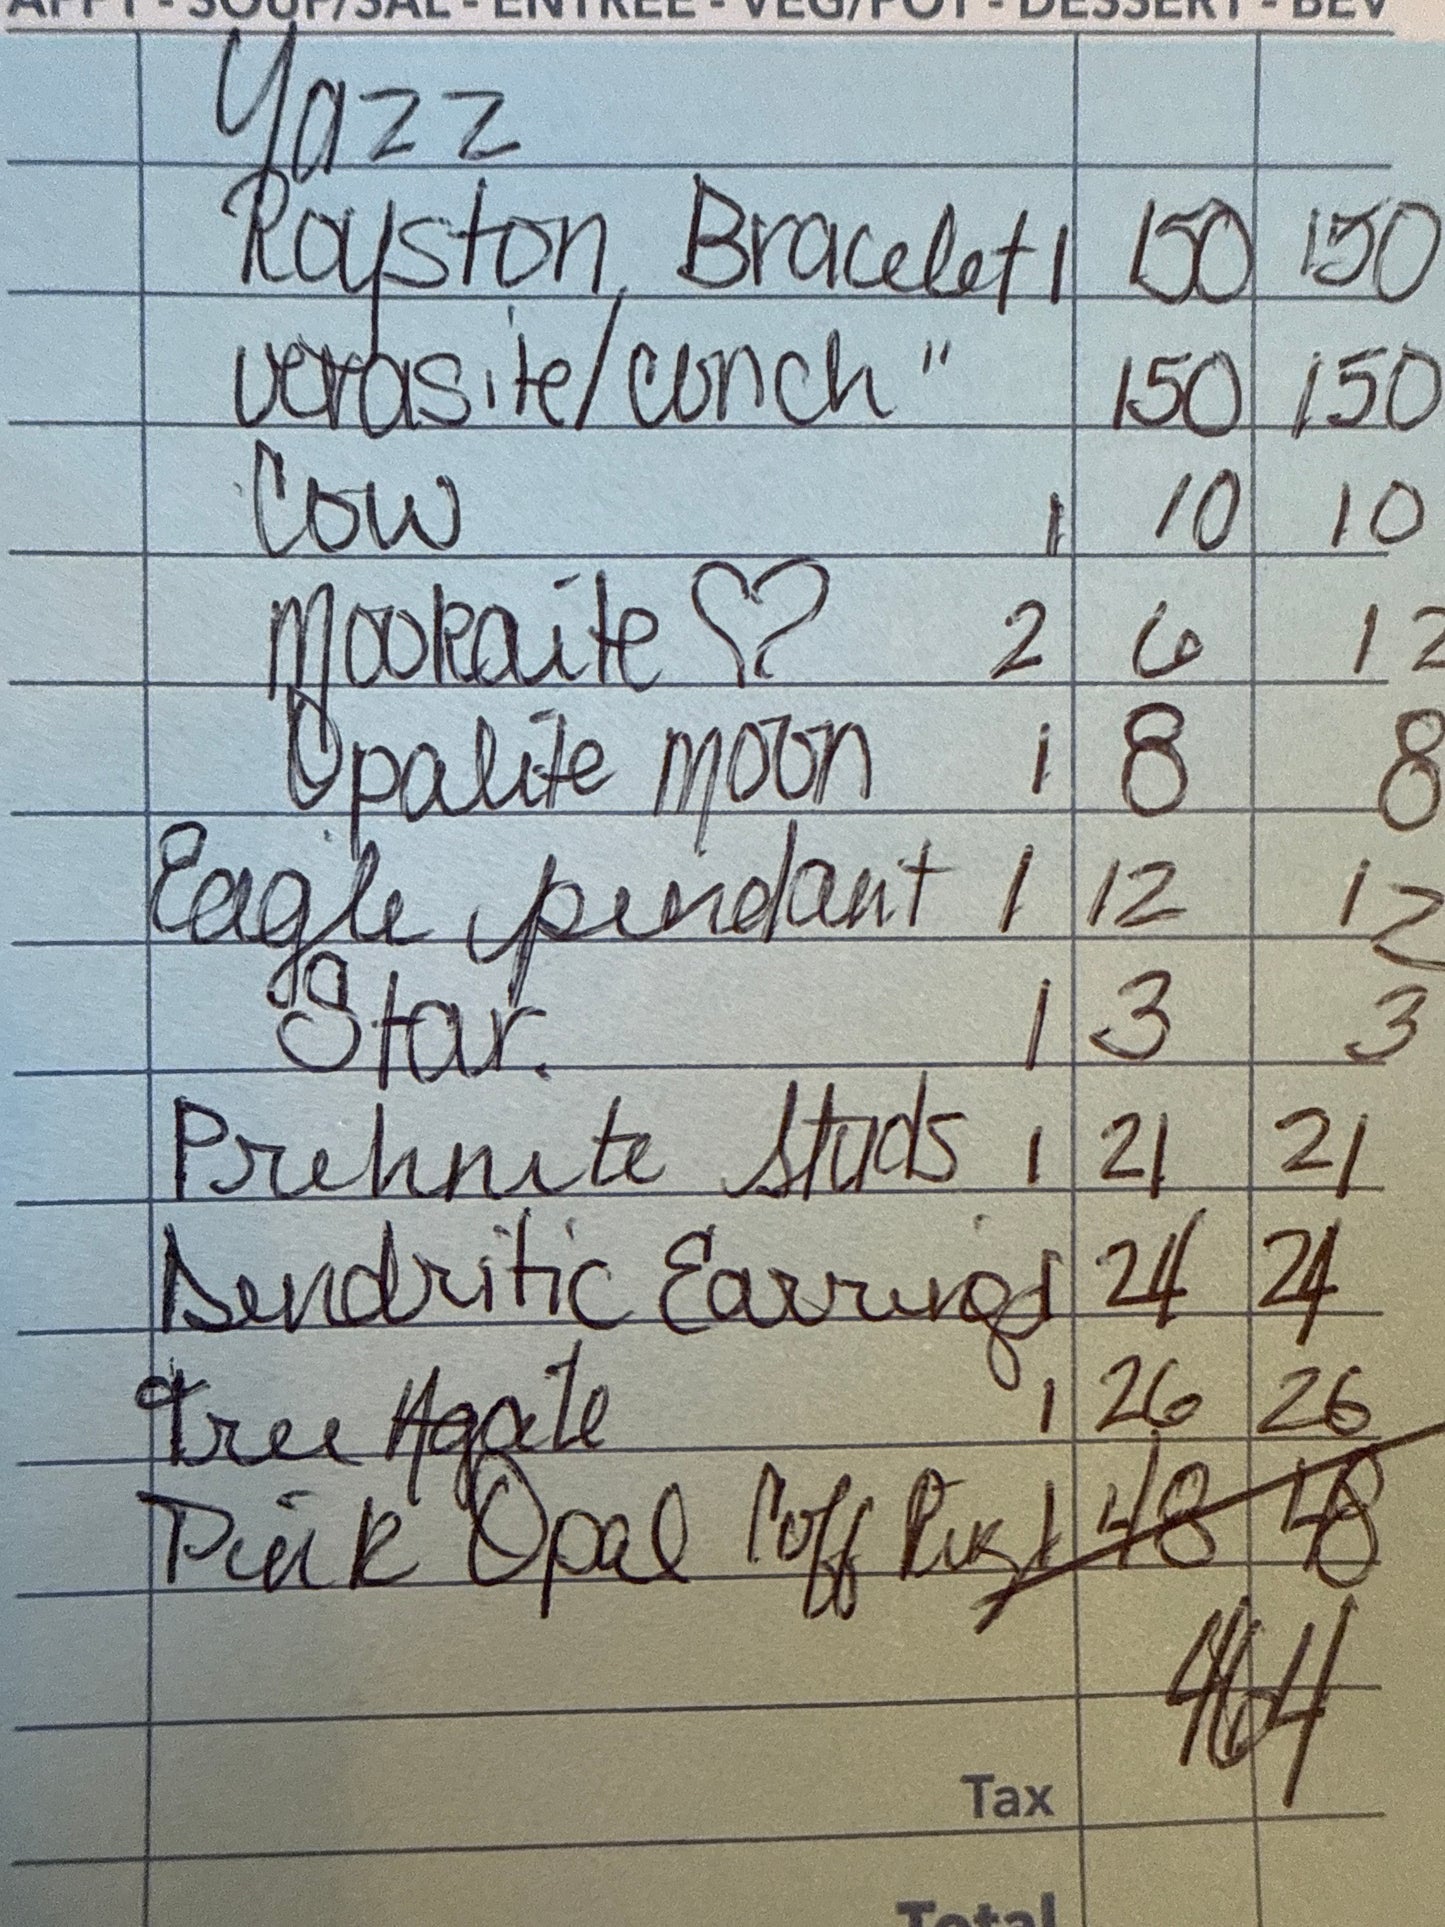 APPT - SOUP/SAL - ENTREE - VEG/POT - DESSERT - BEV
Yazz
Royston Bracelet 1 150 150
verasite/conch " 150 150
Cow 1 10 10
Mookaite ♡ 2 6 12
Opalite moon 1 8 8
Eagle pendant 1 12 12
Star. 1 3 3
Prehnite Studs 1 21 21
Dendritic Earrings 1 24 24
Tree Agate 1 26 26
Pink Opal Coff 1 48 48
464
Tax
Total